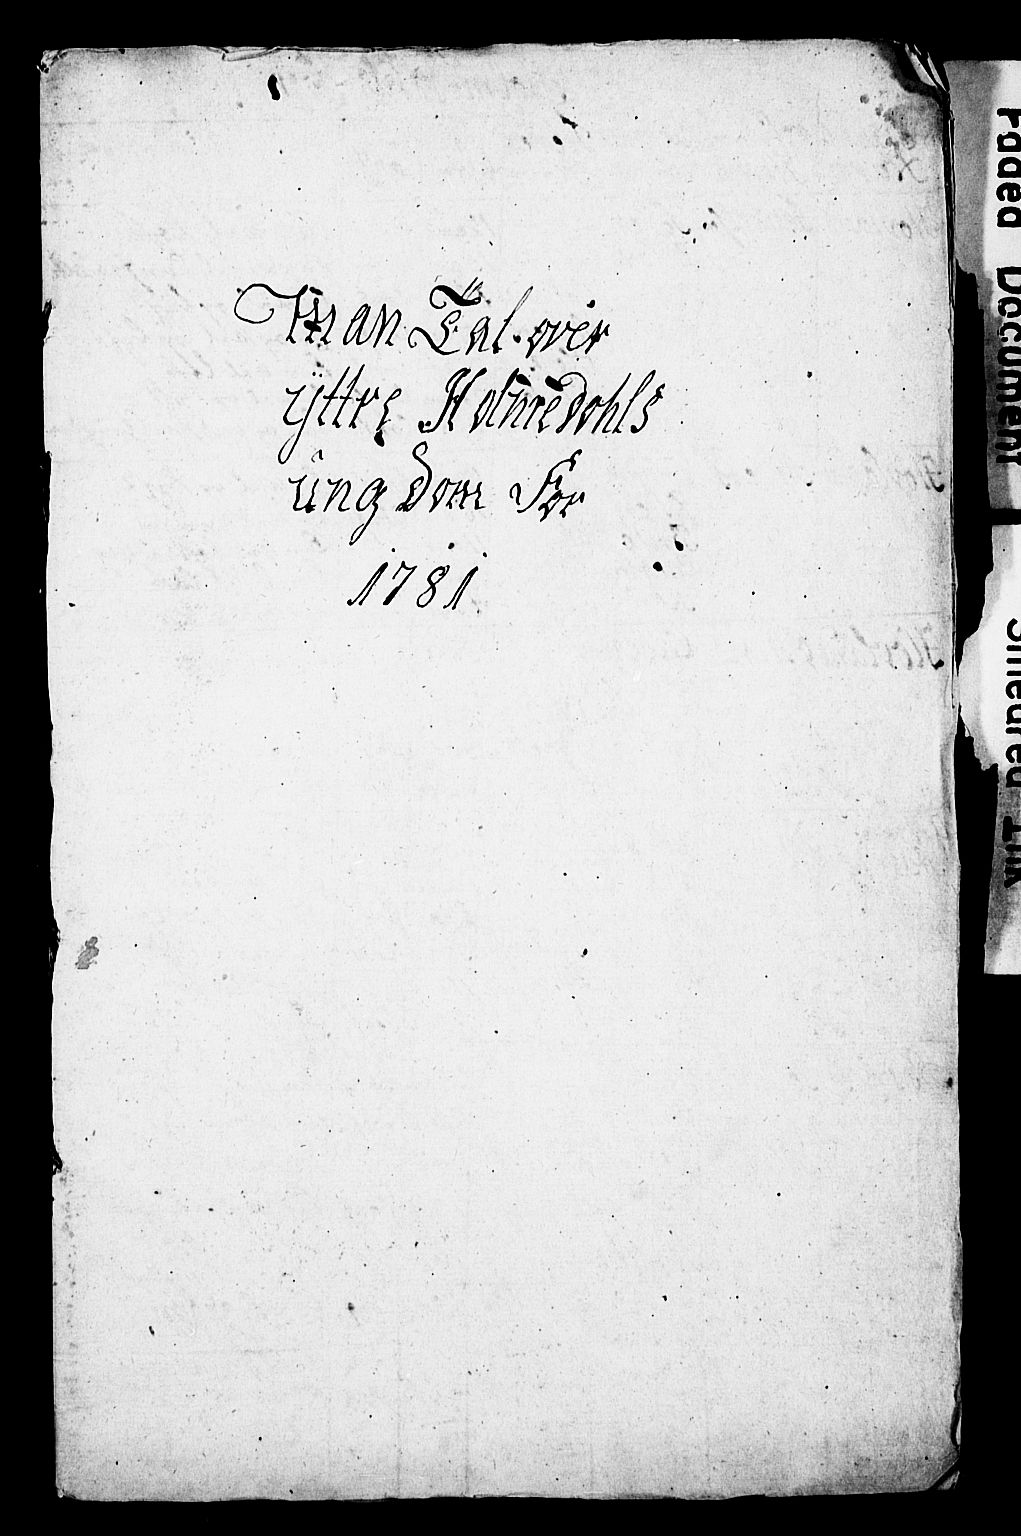 Man Tal over
ÿttre Holmedahls
ûngdom For
1781
Faded Document
Smeared Ink